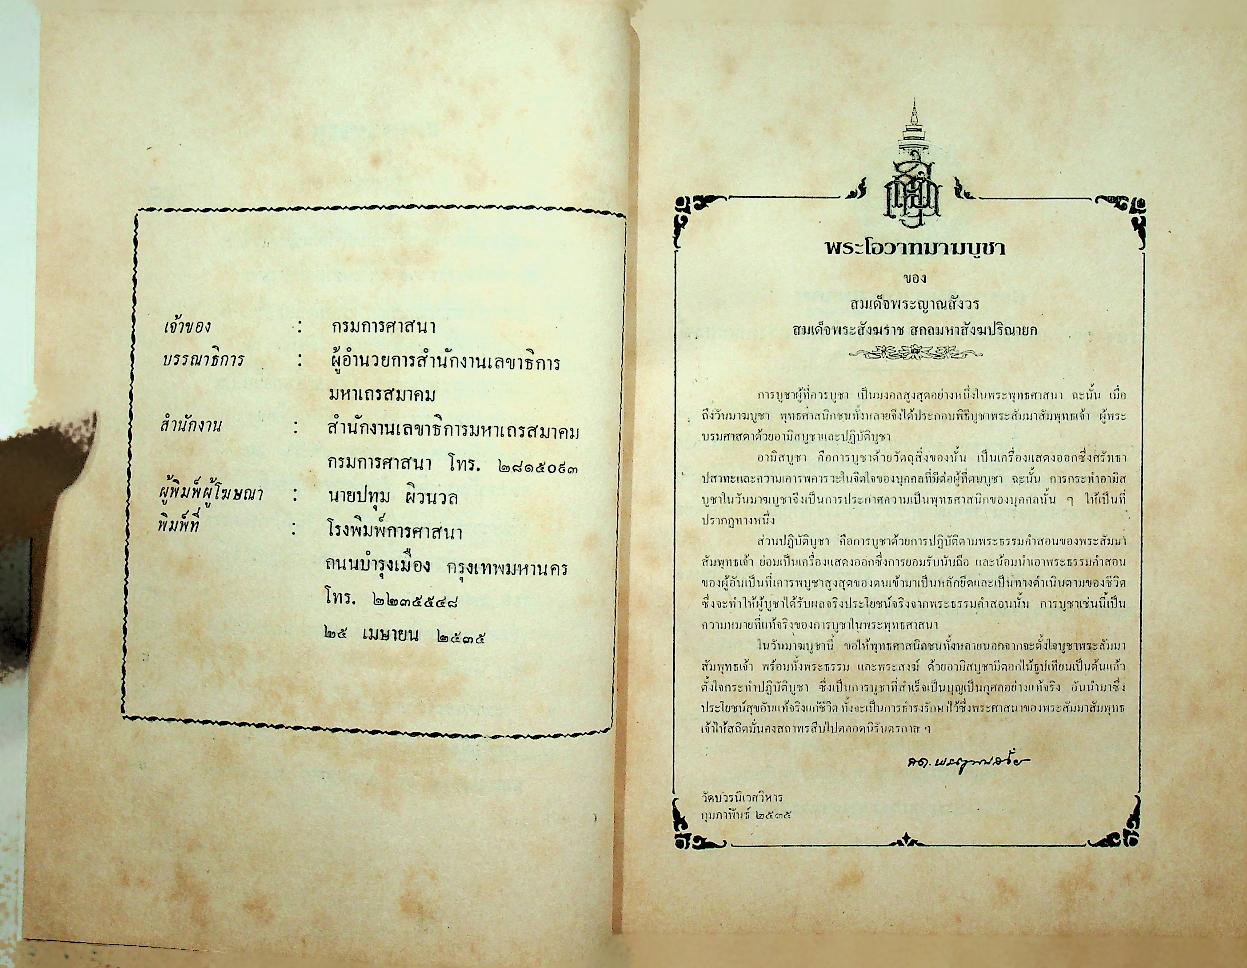 เจ้าของ : กรมการศาสนา
บรรณาธิการ : ผู้อำนวยการสำนักงานเลขาธิการ
มหาเถรสมาคม
สำนักงาน : สำนักงานเลขาธิการมหาเถรสมาคม
กรมการศาสนา โทร. ๒๘๑๕๐๙๓
ผู้พิมพ์ผู้โฆษณา : นายปทุม ผิวนวล
พิมพ์ที่ : โรงพิมพ์การศาสนา
ถนนบำรุงเมือง กรุงเทพมหานคร
โทร. ๒๒๓๕๕๔๘
๒๕ เมษายน ๒๕๓๕
พระโอวาทมาฆบูชา
ของ
สมเด็จพระญาณสังวร
สมเด็จพระสังฆราช สกลมหาสังฆปริณายก
การบูชาผู้ที่ควรบูชา เป็นมงคลสูงสุดอย่างหนึ่งในพระพุทธศาสนา ฉะนั้น เมื่อ
ถึงวันมาฆบูชา พุทธศาสนิกชนทั้งหลายจึงได้ประกอบพิธีบูชาพระสัมมาสัมพุทธเจ้า ผู้พระ
บรมศาสดาด้วยอามิสบูชาและปฏิบัติบูชา
อามิสบูชา คือการบูชาด้วยวัตถุสิ่งของนั้น เป็นเครื่องแสดงออกซึ่งศรัทธา
ปสาทะและความเคารพคารวะในจิตใจของบุคคลที่มีต่อผู้ที่ตนบูชา ฉะนั้น การกระทำอามิส
บูชาในวันมาฆบูชาจึงเป็นการประกาศความเป็นพุทธศาสนิกของบุคคลนั้น ๆ ให้เป็นที่
ปรากฏทางหนึ่ง
ส่วนปฏิบัติบูชา คือการบูชาด้วยการปฏิบัติตามพระธรรมคำสอนของพระสัมมา
สัมพุทธเจ้า ย่อมเป็นเครื่องแสดงออกซึ่งการยอมรับนับถือ และน้อมนำเอาพระธรรมคำสอน
ของผู้อันเป็นที่เคารพบูชาสูงสุดของตนเข้ามาเป็นหลักยึดและเป็นทางดำเนินตามของชีวิต
ซึ่งจะทำให้ผู้บูชาได้รับผลจริงประโยชน์จริงจากพระธรรมคำสอนนั้น การบูชาเช่นนี้เป็น
ความหมายที่แท้จริงของการบูชาในพระพุทธศาสนา
ในวันมาฆบูชานี้ ขอให้พุทธศาสนิกชนทั้งหลายนอกจากจะตั้งใจบูชาพระสัมมา
สัมพุทธเจ้า พร้อมทั้งพระธรรม และพระสงฆ์ ด้วยอามิสบูชามีดอกไม้ธูปเทียนเป็นต้นแล้ว
ตั้งใจกระทำปฏิบัติบูชา ซึ่งเป็นการบูชาที่สำเร็จเป็นบุญเป็นกุศลอย่างแท้จริง อันนำมาซึ่ง
ประโยชน์สุขอันแท้จริงแก่ชีวิต ทั้งจะเป็นการธำรงรักษาไว้ซึ่งพระศาสนาของพระสัมมาสัมพุทธ
เจ้าให้สถิตมั่นคงสถาพรสืบไปตลอดนิรันดรกาล ฯ
วัดบวรนิเวศวิหาร
กุมภาพันธ์ ๒๕๓๕